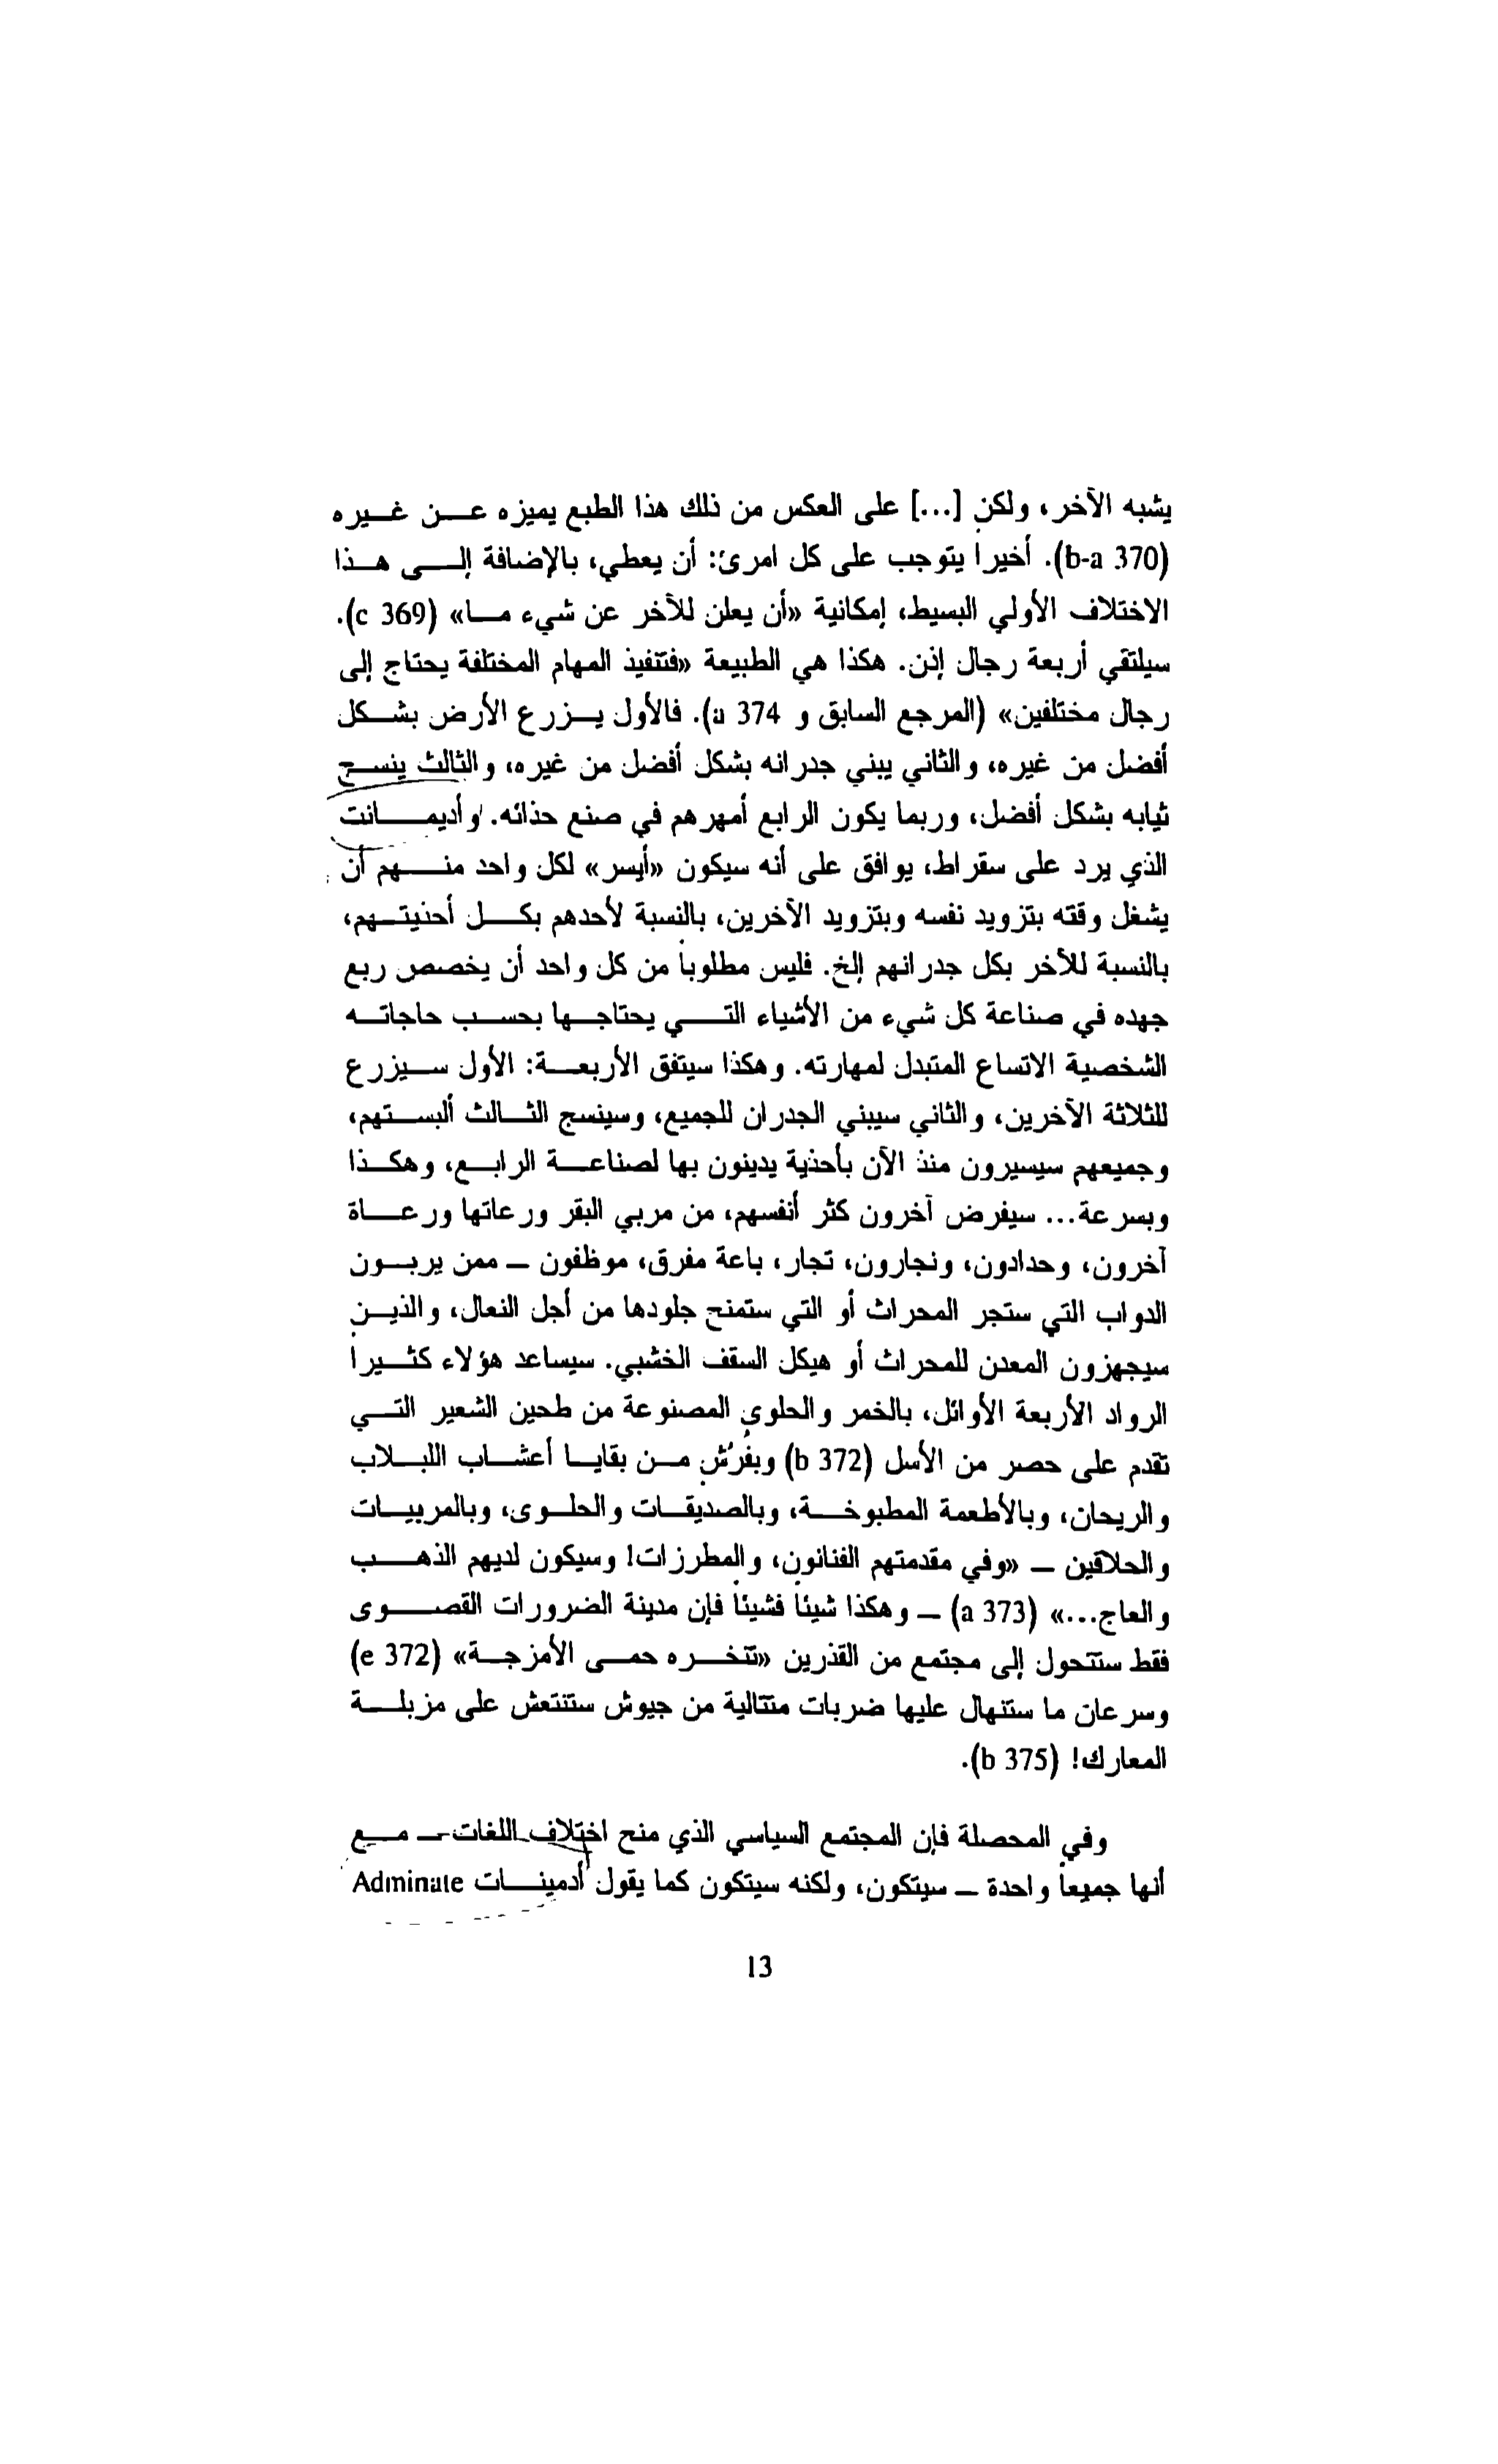 يشبه الآخر، ولكن [...] على العكس من ذلك هذا الطبع يميزه عن غيره
(b-a 370). أخيراً يتوجب على كل امرئ: أن يعطي، بالإضافة إلى هذا
الاختلاف الأولي البسيط، إمكانية «أن يعلن للآخر عن شيء ما» (c 369).
سيلتقي أربعة رجال إذن. هكذا هي الطبيعة «فتنفيذ المهام المختلفة يحتاج إلى
رجال مختلفين» (المرجع السابق و a 374). فالأول يزرع الأرض بشكل
أفضل من غيره، والثاني يبني جدرانه بشكل أفضل من غيره، والثالث ينسج
ثيابه بشكل أفضل، وربما يكون الرابع أمهرهم في صنع حذائه. وأديمانت
الذي يرد على سقراط، يوافق على أنه سيكون «أيسر» لكل واحد منهم أن
يشغل وقته بتزويد نفسه وبتزويد الآخرين، بالنسبة لأحدهم بكل أحذيتهم،
بالنسبة للآخر بكل جدرانهم إلخ. فليس مطلوباً من كل واحد أن يخصص ربع
جهده في صناعة كل شيء من الأشياء التي يحتاجها بحسب حاجاته
الشخصية الاتساع المتبدل لمهارته. وهكذا سيتفق الأربعة: الأول سيزرع
للثلاثة الآخرين، والثاني سيبني الجدران للجميع، وسينسج الثالث ألبستهم،
وجميعهم سيسيرون منذ الآن بأحذية يدينون بها لصناعة الرابع، وهكذا
وبسرعة... سيفرض آخرون كثر أنفسهم، من مربي البقر ورعاتها ورعاة
آخرون، وحدادون، ونجارون، تجار، باعة مفرق، موظفون – ممن يربون
الدواب التي ستجر المحراث أو التي ستمنح جلودها من أجل النعال، والذين
سيجهزون المعدن للمحراث أو هيكل السقف الخشبي. سيساعد هؤلاء كثيراً
الرواد الأربعة الأوائل، بالخمر والحلوى المصنوعة من طحين الشعير التي
تقدم على حصر من الأسل (b 372) وبفُرُش من بقايا أعشاب اللبلاب
والريحان، وبالأطعمة المطبوخة، وبالصديقات والحلوى، وبالمربيات
والحلاقين – «وفي مقدمتهم الفنانون، والمطرزات! وسيكون لديهم الذهب
والعاج...» (a 373) – وهكذا شيئاً فشيئاً فإن مدينة الضرورات القصوى
فقط ستتحول إلى مجتمع من القذرين «تنخره حمى الأمزجة» (e 372)
وسرعان ما ستنهال عليها ضربات متتالية من جيوش ستنتعش على مزبلة
المعارك! (b 375).
وفي المحصلة فإن المجتمع السياسي الذي منح اختلاف اللغات – مع
أنها جميعاً واحدة – سيتكون، ولكنه سيتكون كما يقول أدمينات Adminate
13